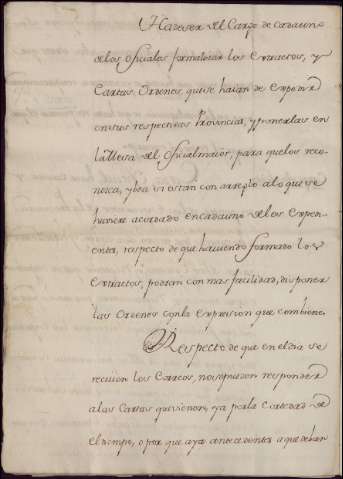 Ha de ser del Cargo de cada uno
de los Oficiales formalizar los Extractos, y
Cartas Ordenes, que se haian de expedir
en sus respectivas Provincias, y ponerlas en
la Mesa del Oficial maior, para que los reco-
nozca, y vea si estan con arreglo alo que se
huviere acordado en cada uno de los Expe-
entes, respecto de que haviendo formado los
Extractos, podran con mas facilidad, disponer
las Ordenes con la expresion que combiene.
Respecto de que en el dia se
reciven los Correos, no se pueden responder
a las Cartas que vienen, ya por la cortedad de
el tiempo, o por que aya antecedentes a que deban